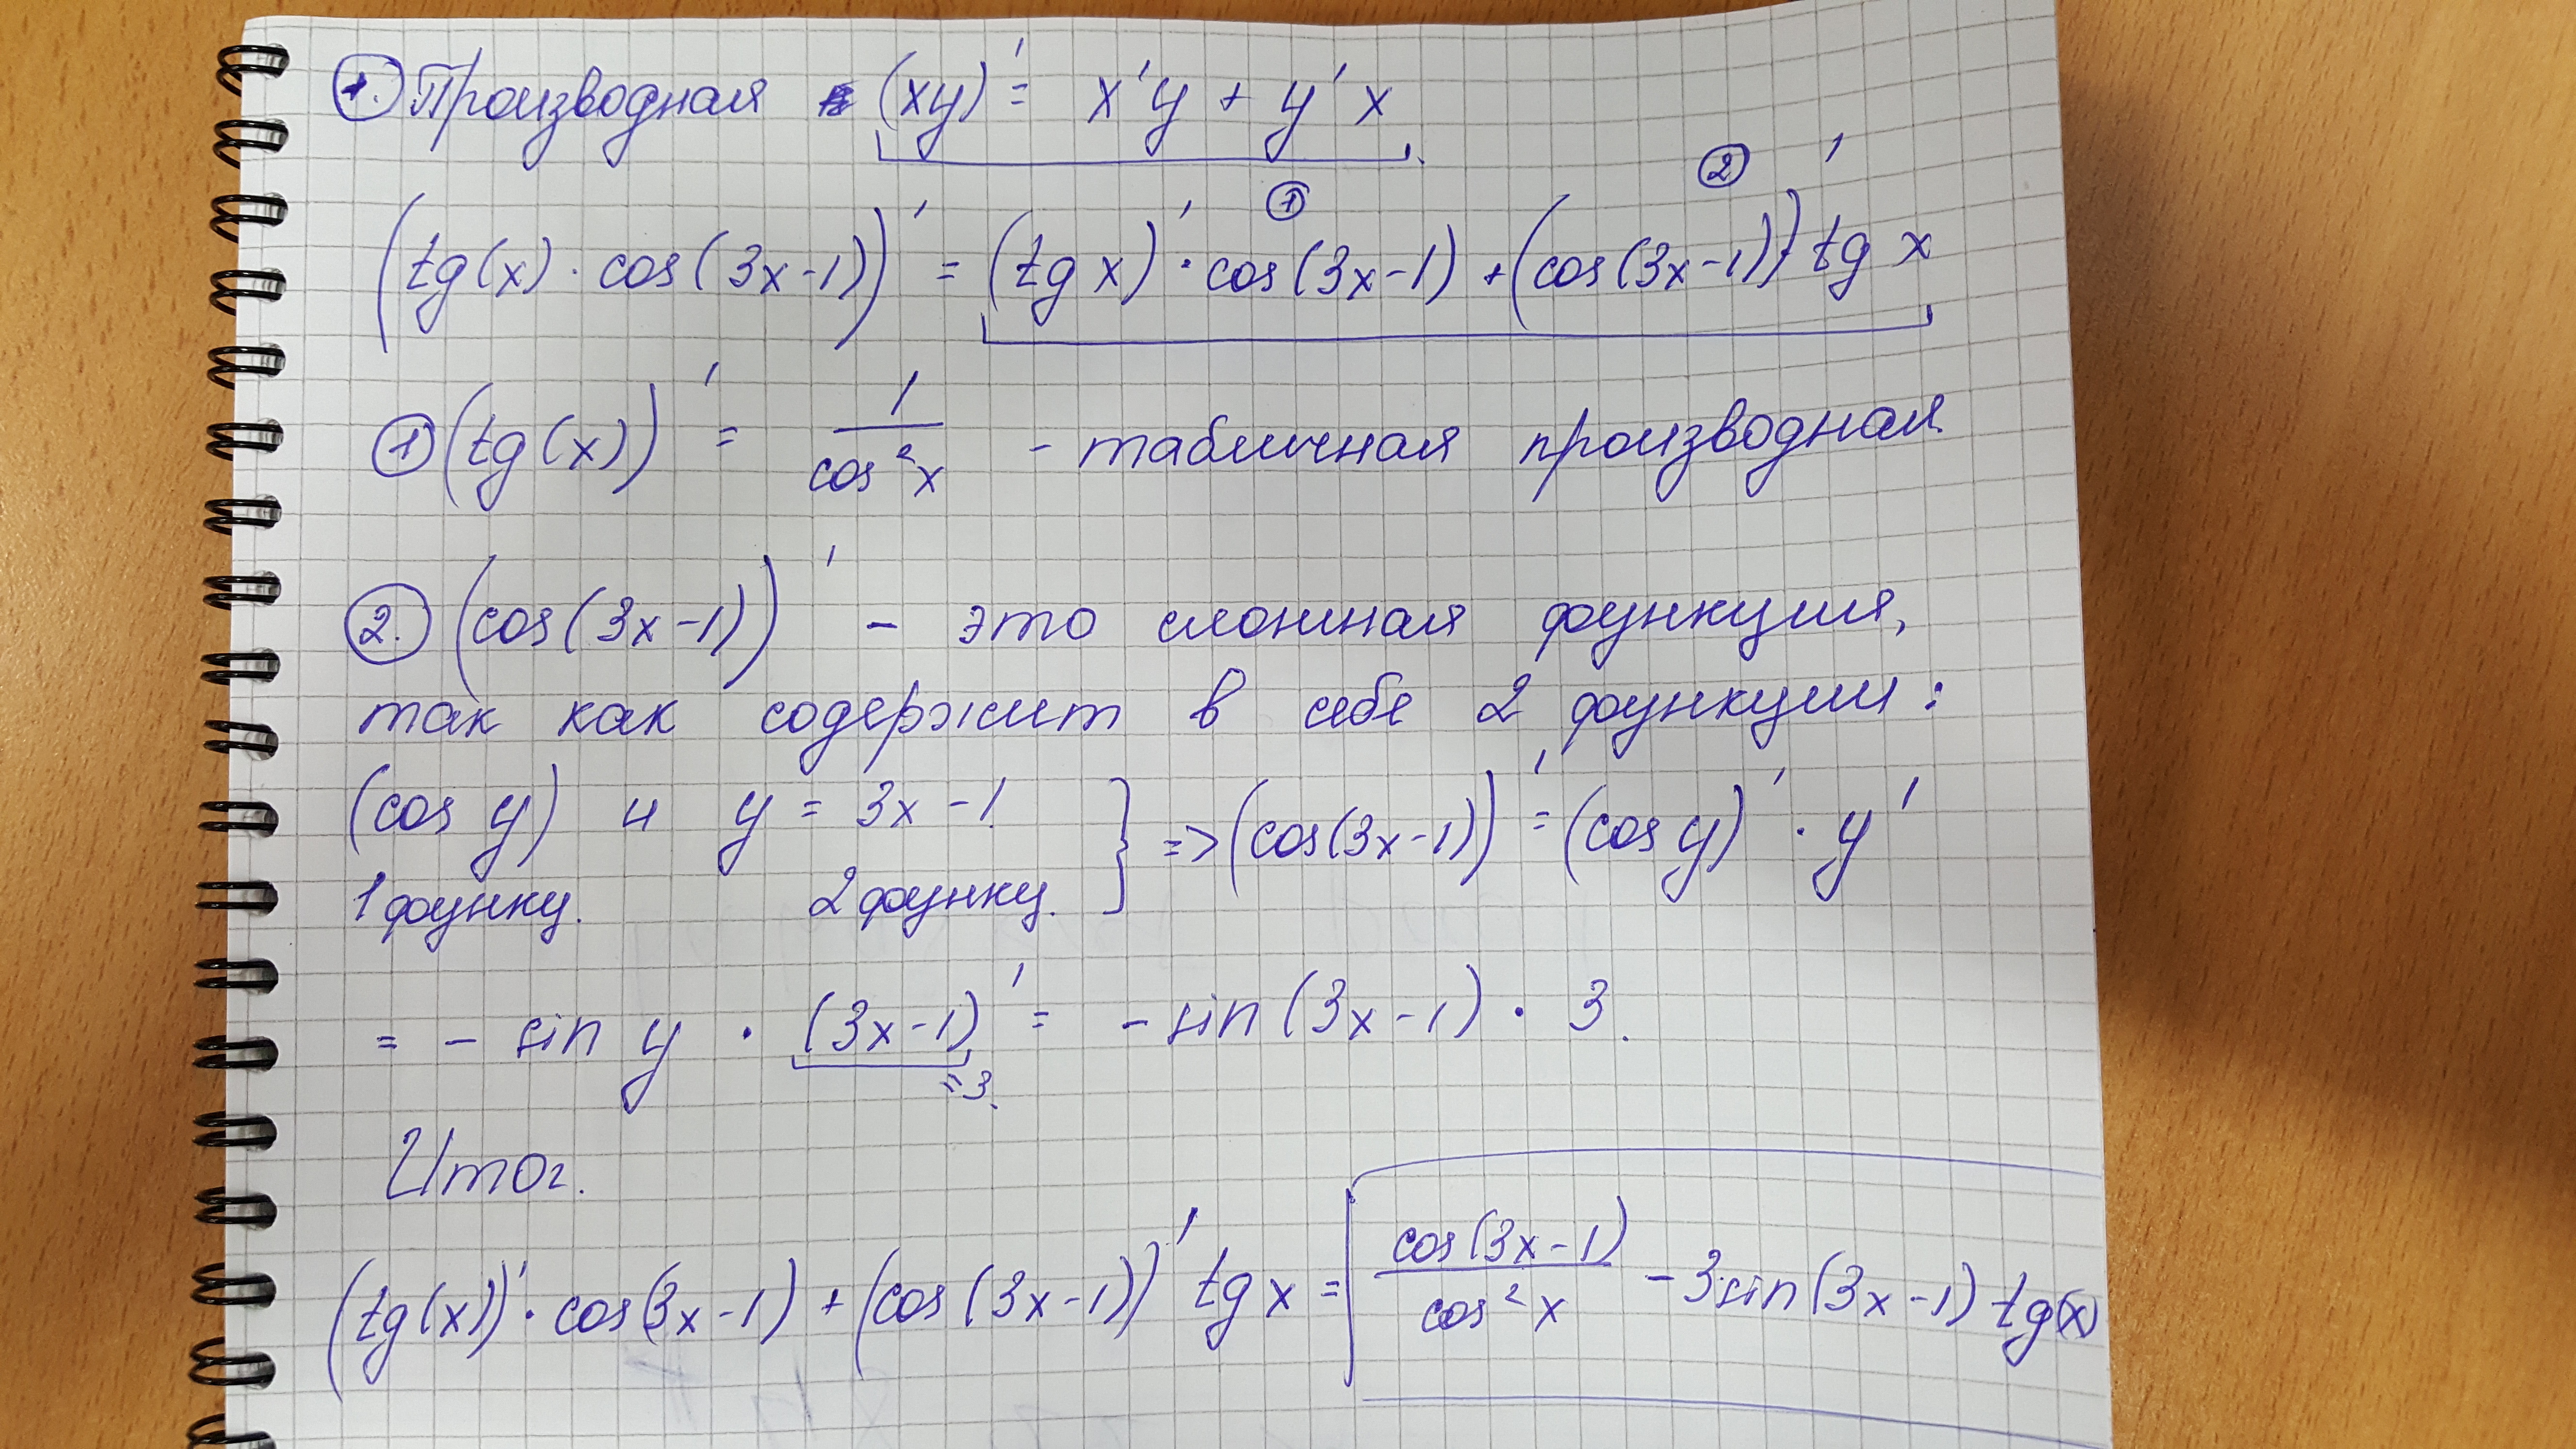 1. Производная (xy)' = x'y + y'x
① ②
(tg(x) · cos(3x-1))' = (tg x)' · cos(3x-1) + (cos(3x-1))' tg x
① (tg(x))' = 1/cos²x - табличная производная.
②. (cos(3x-1))' - это сложная функция,
так как содержит в себе 2 функции:
(cos y) и y = 3x-1. } => (cos(3x-1))' = (cos y)' · y'
1 функц. 2 функц.
= - sin y · (3x-1)' = - sin(3x-1) · 3.
=3.
Итог.
(tg(x))' · cos(3x-1) + (cos(3x-1))' tg x = cos(3x-1)/cos²x - 3·sin(3x-1) tg(x)